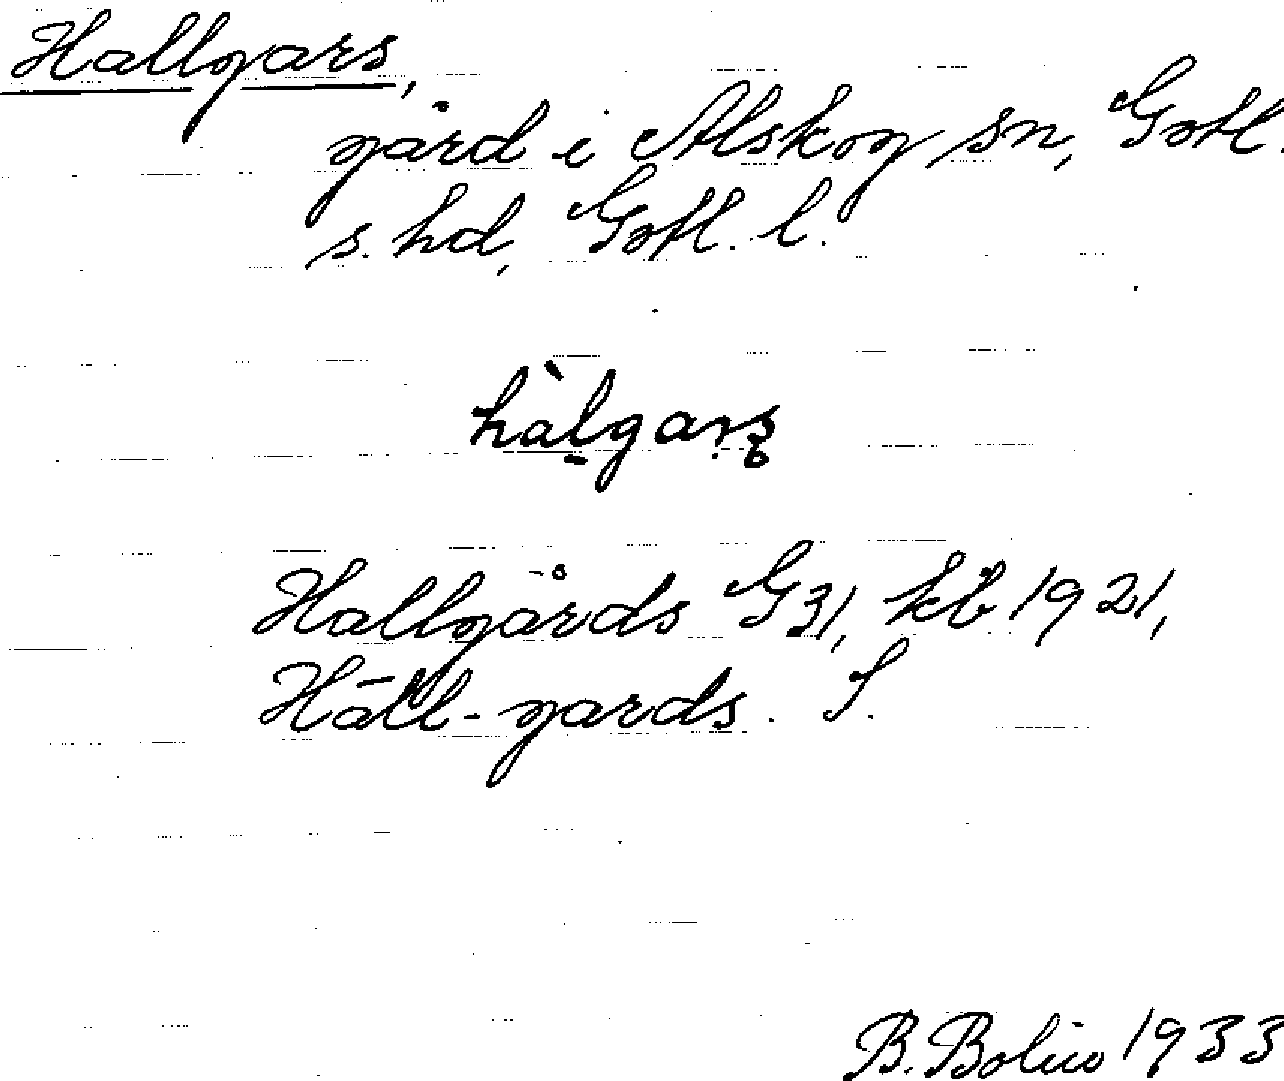 Hallgars,
gård i Alskog sn, Gotl.
s. hd, Gotl. l.
hàlgarş
Hallgårds G31, kb 1921,
Häll-gards. S.
B. Bolin 1933